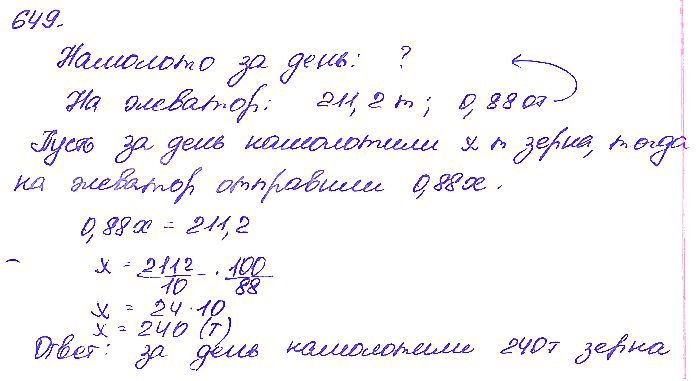 649.
Намолото за день: ?
На элеватор: 211,2 т; 0,88 от
Пусть за день намолотили x т зерна, тогда
на элеватор отправили 0,88x.
0,88x = 211,2
x = 2112/10 · 100/88
x = 24 · 10
x = 240 (т)
Ответ: за день намолотили 240т зерна